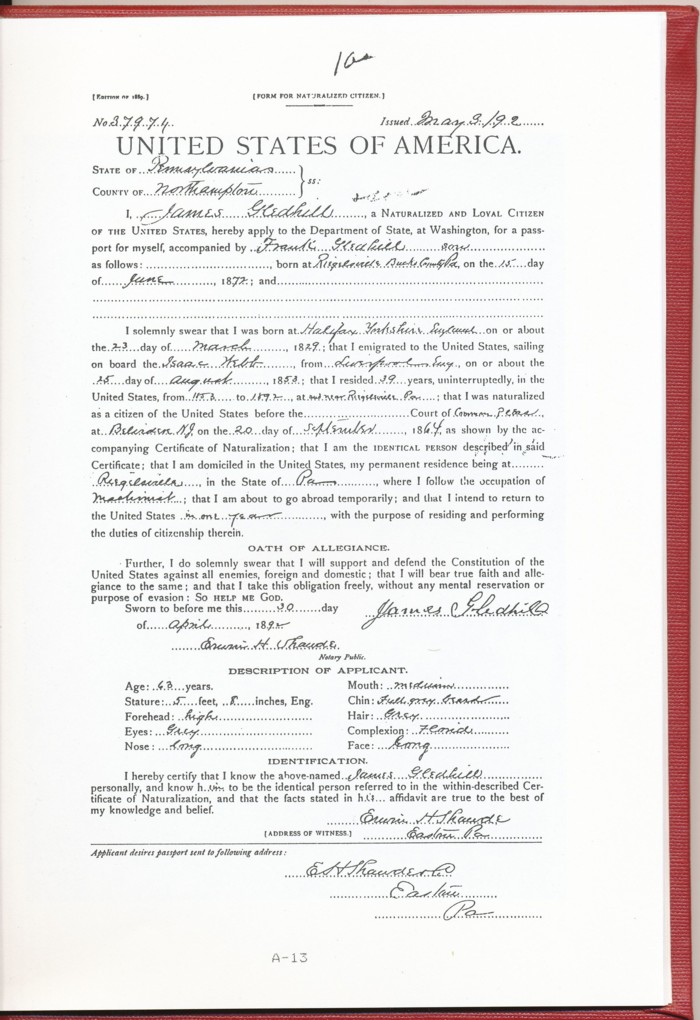 10
[EDITION OF 1889.] [FORM FOR NATURALIZED CITIZEN.]
No. 37974. Issued May 3. 192
UNITED STATES OF AMERICA.
STATE OF Pennsylvania
COUNTY OF Northampton } ss:
I, James Gledhill, a NATURALIZED AND LOYAL CITIZEN
OF THE UNITED STATES, hereby apply to the Department of State, at Washington, for a pass-
port for myself, accompanied by Frank Gledhill son
as follows: , born at Riegelsville Bucks County Pa, on the 15 day
of June, 1872; and
I solemnly swear that I was born at Halifax Yorkshire England on or about
the 23 day of March, 1829; that I emigrated to the United States, sailing
on board the Isaac Webb, from Liverpool Eng, on or about the
25 day of August, 1853; that I resided 39 years, uninterruptedly, in the
United States, from 1853 to 1892, at and near Riegelsville Pa; that I was naturalized
as a citizen of the United States before the Court of Common Pleas
at Belvidere NJ, on the 20 day of September, 1864, as shown by the ac-
companying Certificate of Naturalization; that I am the IDENTICAL PERSON described in said
Certificate; that I am domiciled in the United States, my permanent residence being at
Riegelsville, in the State of Pa, where I follow the occupation of
Machinist; that I am about to go abroad temporarily; and that I intend to return to
the United States in one year, with the purpose of residing and performing
the duties of citizenship therein.
OATH OF ALLEGIANCE.
Further, I do solemnly swear that I will support and defend the Constitution of the
United States against all enemies, foreign and domestic; that I will bear true faith and alle-
giance to the same; and that I take this obligation freely, without any mental reservation or
purpose of evasion: SO HELP ME GOD.
Sworn to before me this 30 day James Gledhill
of April, 1892
Erwin H Shawde
Notary Public.
DESCRIPTION OF APPLICANT.
Age: 63 years. Mouth: medium
Stature: 5 feet, 8 inches, Eng. Chin: Full grey beard
Forehead: high Hair: Grey
Eyes: Grey Complexion: Florid
Nose: Long Face: Long
IDENTIFICATION.
I hereby certify that I know the above-named James Gledhill
personally, and know him to be the identical person referred to in the within-described Cer-
tificate of Naturalization, and that the facts stated in his affidavit are true to the best of
my knowledge and belief.
Erwin H Shawde
[ADDRESS OF WITNESS.] Easton Pa
Applicant desires passport sent to following address:
E H Shawde
Easton
Pa
A-13